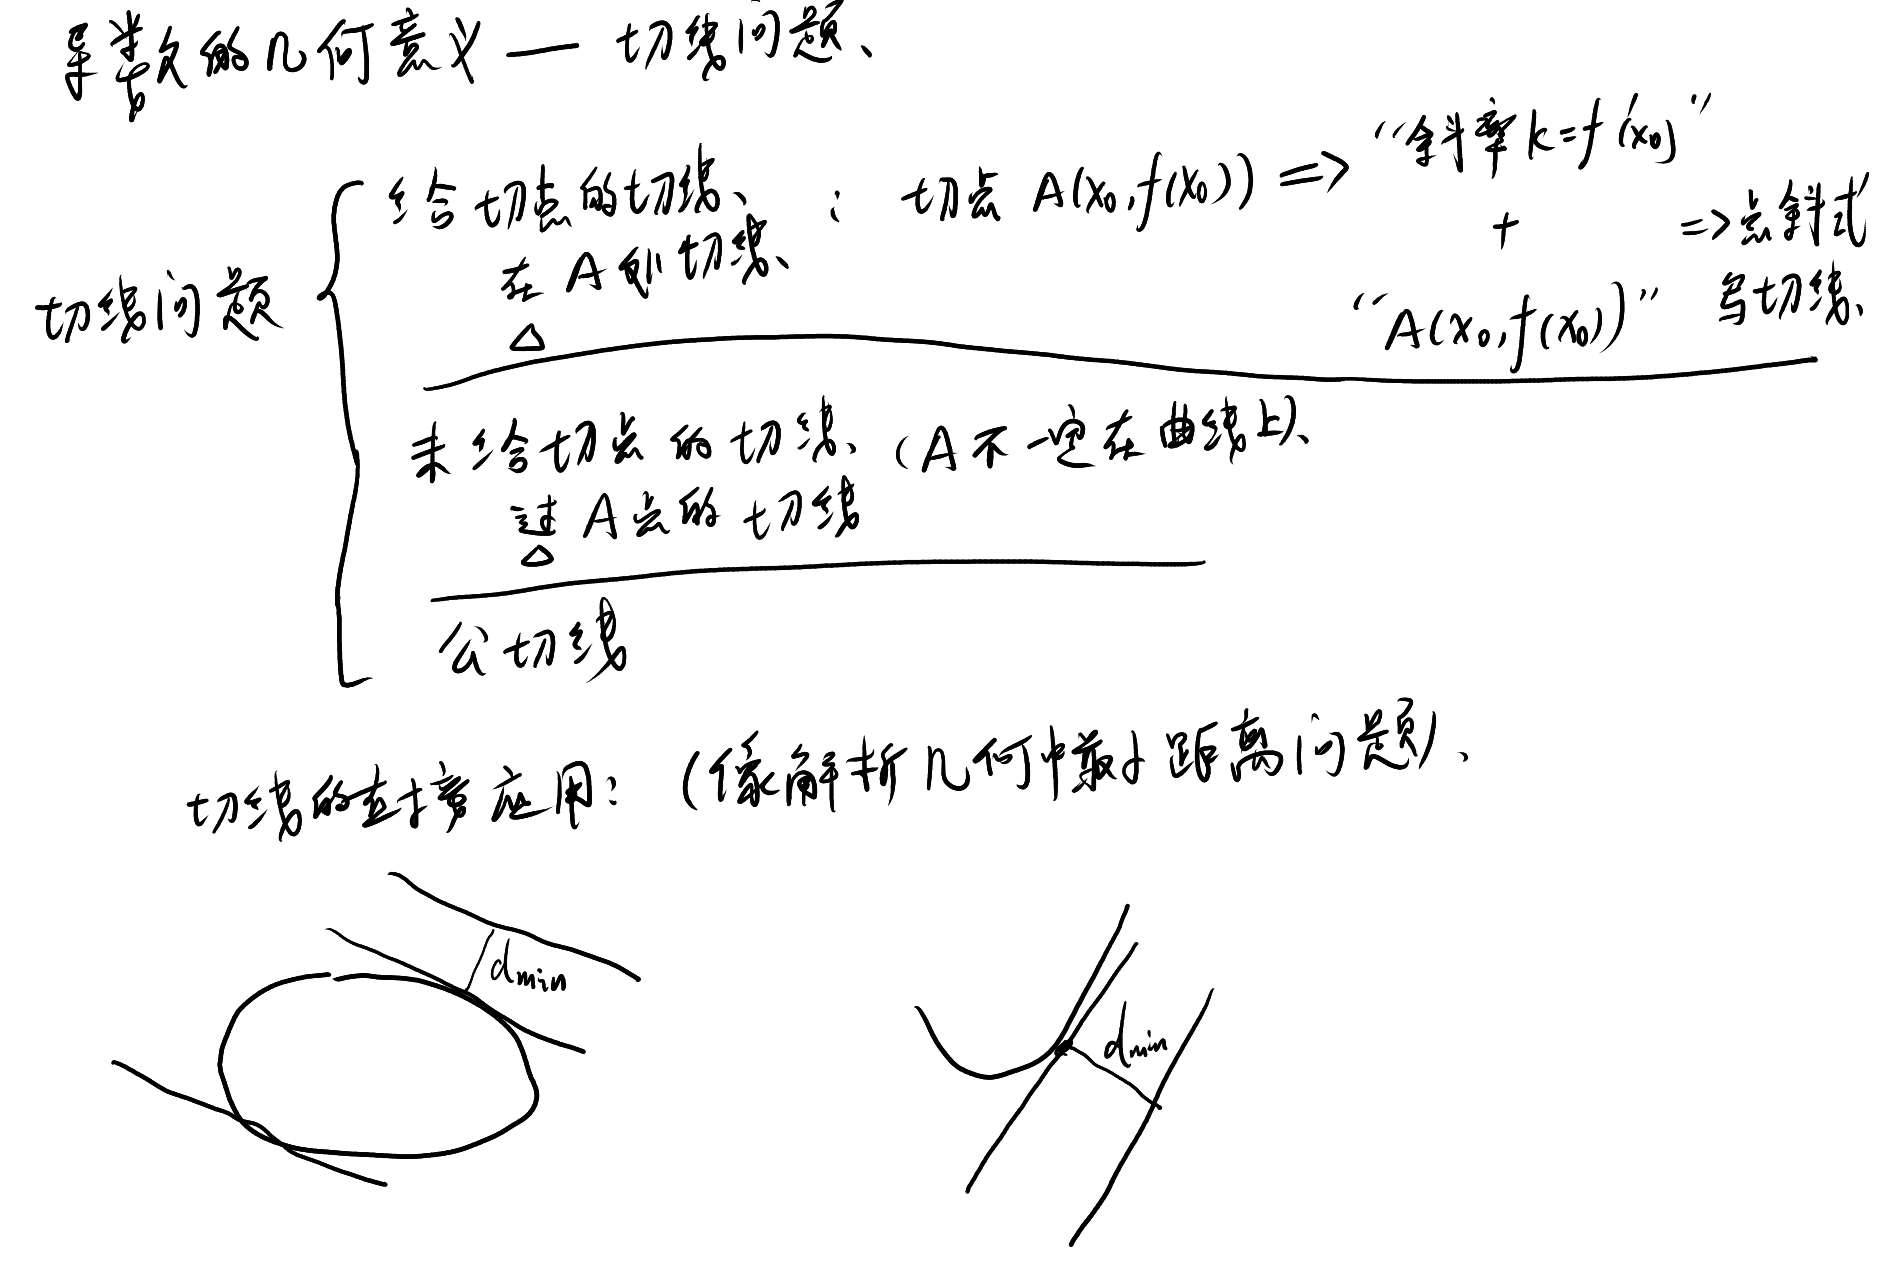 导数的几何意义 — 切线问题、
切线问题
给切点的切线、: 切点 A(x₀,f(x₀)) => “斜率 k=f'(x₀)”
在 A 的切线、
+
=>点斜式
写切线、
“A(x₀,f(x₀))”
未给切点的切线、(A不一定在曲线上)、
过 A 点的切线
公切线
切线的直接应用: (像解析几何中最小距离问题)、
dmin
dmin